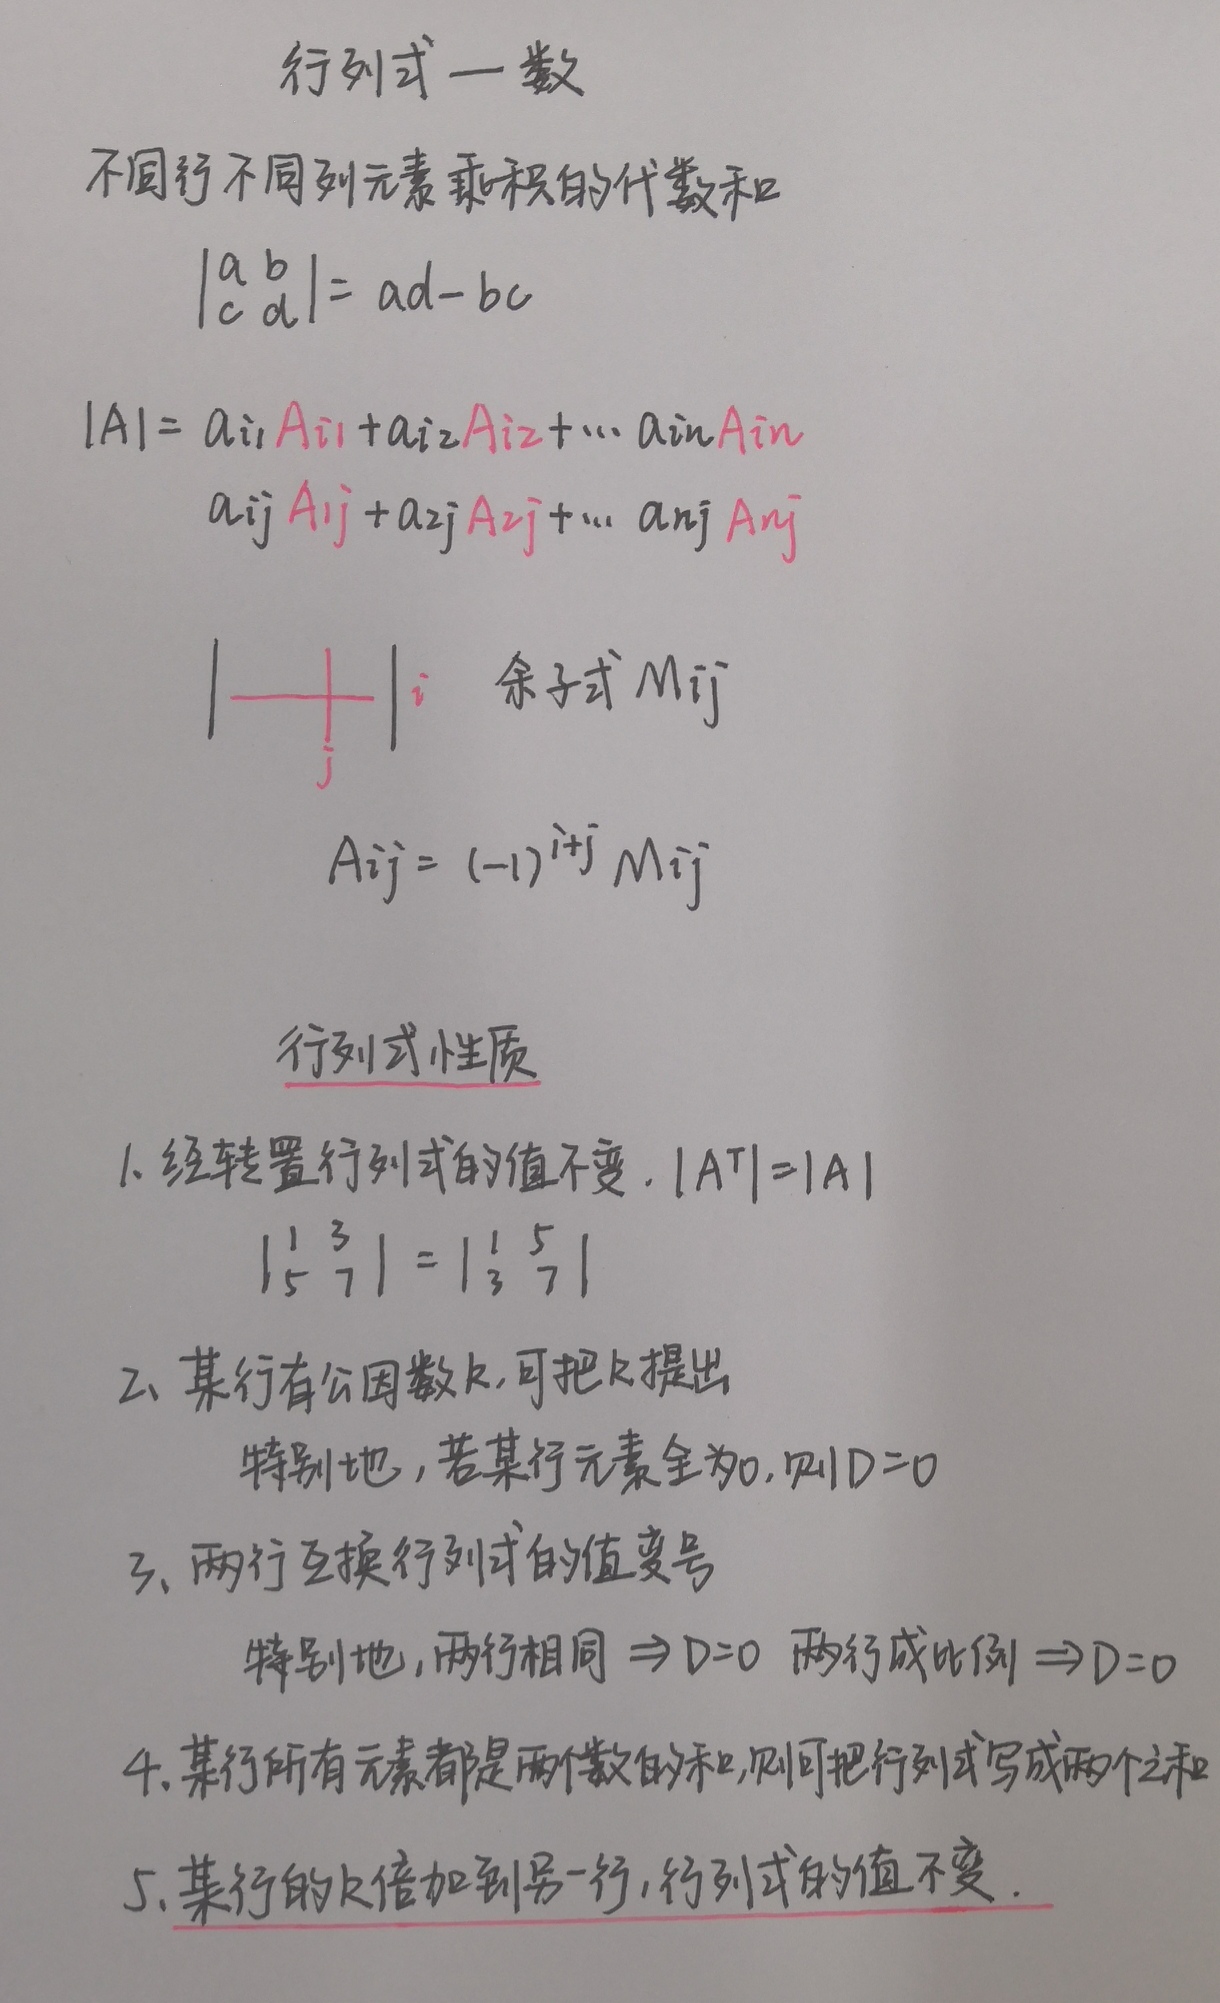 行列式—数
不同行不同列元素乘积的代数和
|a b|
|c d| = ad-bc
|A| = ai1Ai1+ai2Ai2+… ainAin
aijA1j+a2jA2j+… anjAnj
i 余子式Mij
j
Aij = (-1)^{i+j} Mij
行列式性质
1、经转置行列式的值不变. |A^T|=|A|
|1 3| = |1 5|
|5 7| |3 7|
2、某行有公因数k,可把k提出
特别地,若某行元素全为0,则D=0
3、两行互换行列式的值变号
特别地,两行相同⇒D=0 两行成比例⇒D=0
4、某行所有元素都是两个数的和,则可把行列式写成两个之和
5、某行的k倍加到另一行,行列式的值不变.